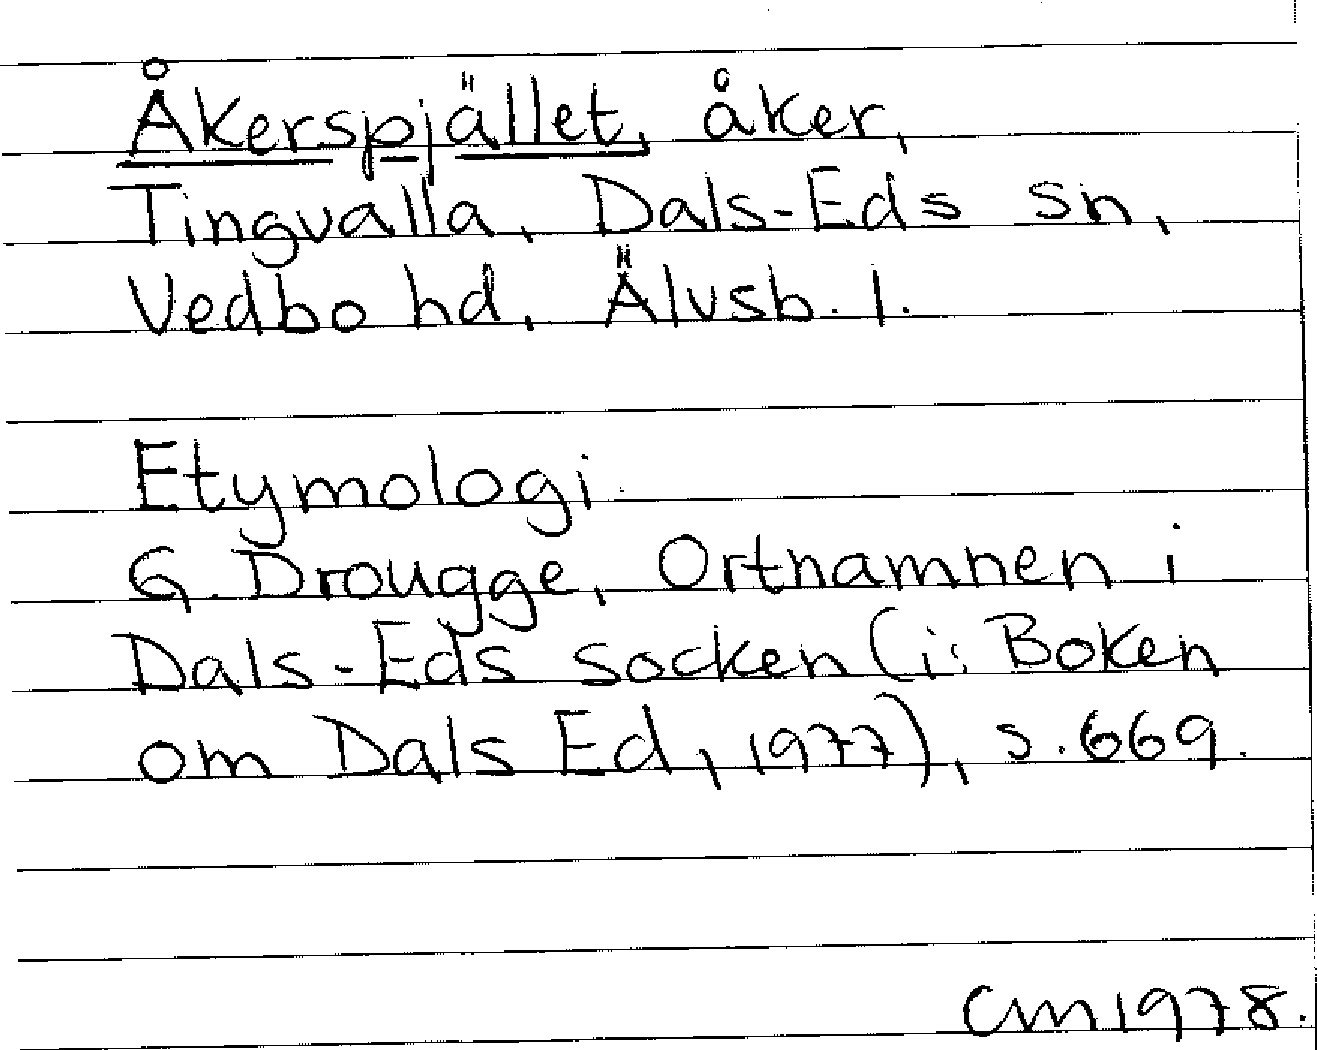 Åkerspjället, åker,
Tingvalla, Dals-Eds sn,
Vedbo hd, Älvsb. l.
Etymologi
G. Drougge, Ortnamnen i
Dals-Eds socken (i: Boken
om Dals Ed, 1977), s. 669.
CM 1978.